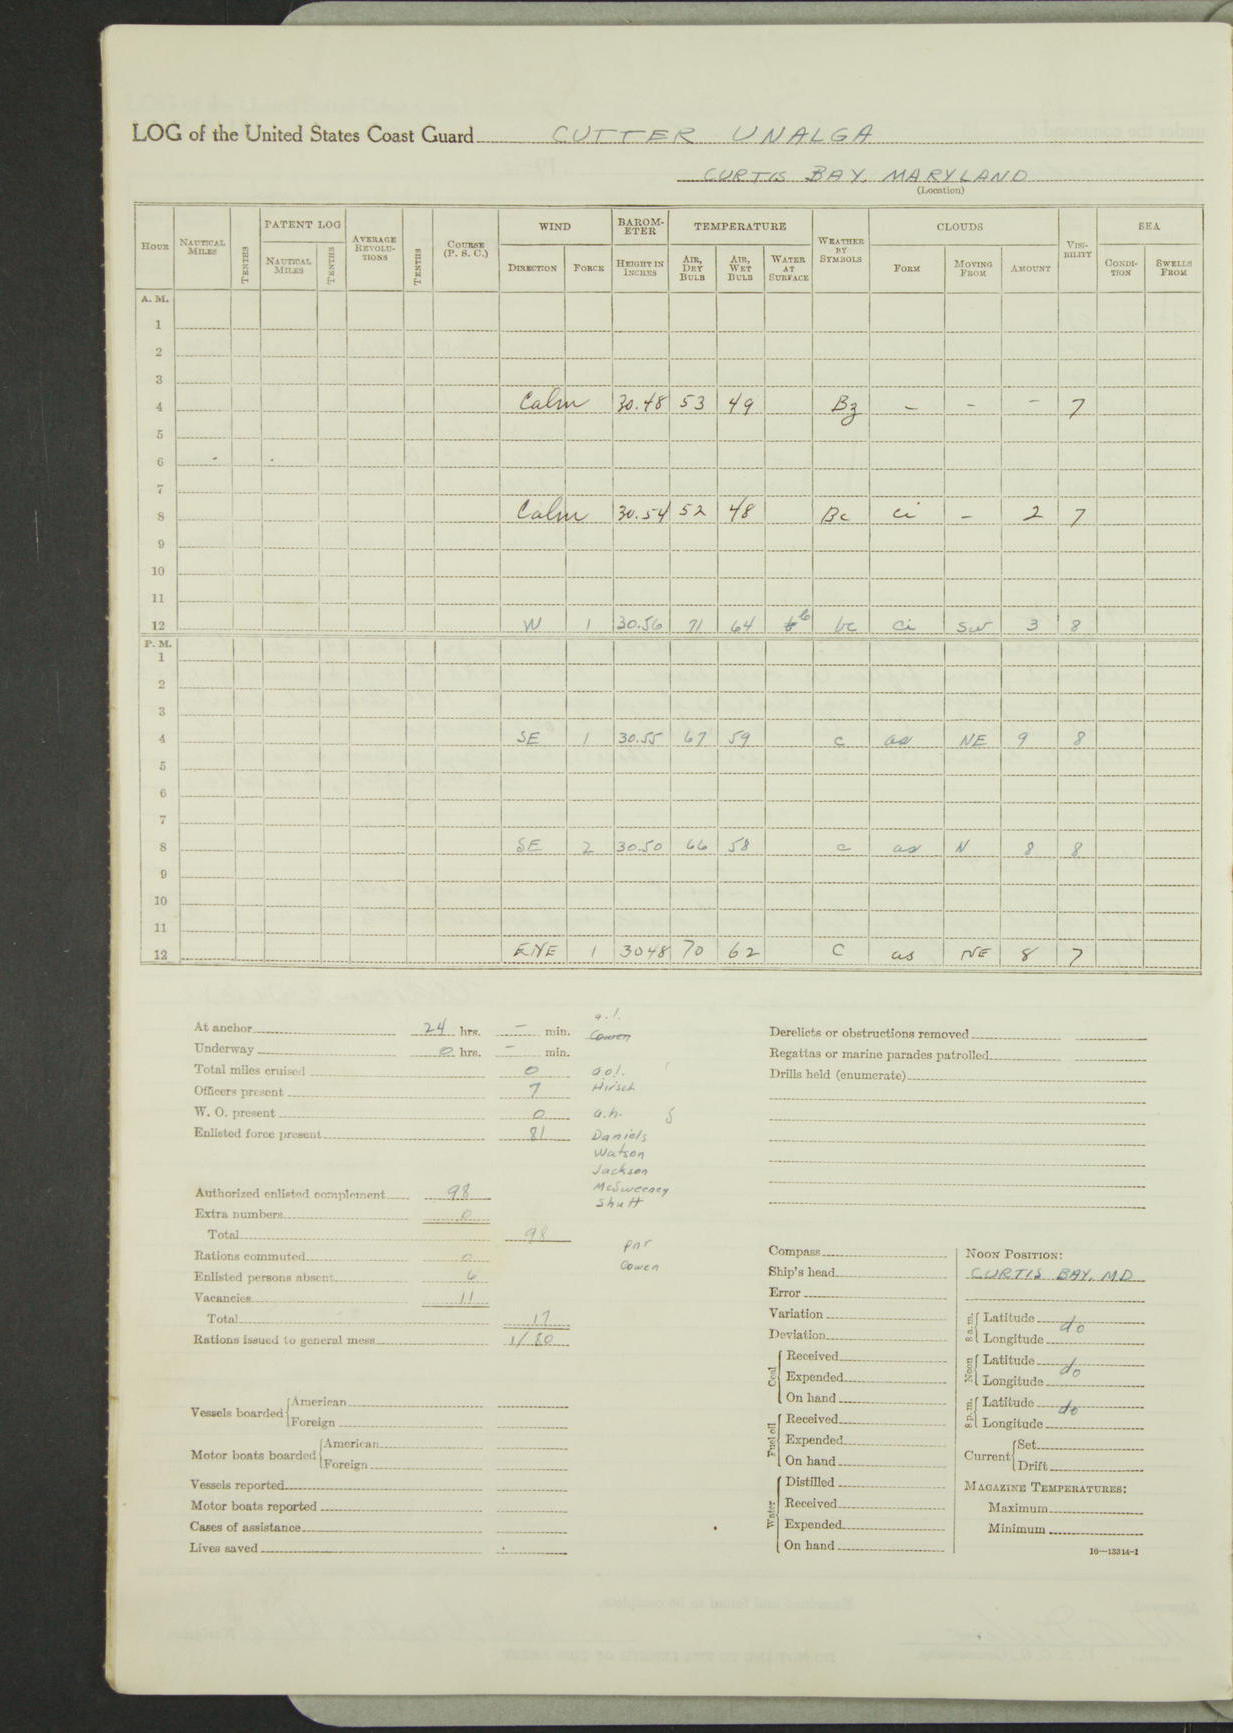 LOG of the United States Coast Guard CUTTER UNALGA
CURTIS BAY, MARYLAND
(Location)
HOUR NAUTICAL MILES TENTHS PATENT LOG NAUTICAL MILES TENTHS AVERAGE REVOLUTIONS TENTHS COURSE (P. S. C.) WIND DIRECTION FORCE BAROMETER HEIGHT IN INCHES TEMPERATURE AIR, DRY BULB AIR, WET BULB WATER AT SURFACE WEATHER BY SYMBOLS CLOUDS FORM MOVING FROM AMOUNT VISIBILITY SEA CONDITION SWELLS FROM
A. M.
1
2
3
4 Calm 30.48 53 49 Bz - - - 7
5
6
7
8 Calm 30.54 52 48 Bc ci - 2 7
9
10
11
12 W 1 30.56 71 64 bc ci SW 3 8
P. M.
1
2
3
4 SE 1 30.55 67 59 c as NE 9 8
5
6
7
8 SE 2 30.50 66 58 c as N 8 8
9
10
11
12 ENE 1 3048 70 62 C as NE 8 7
At anchor 24 hrs. - min.
Underway 0 hrs. - min.
Total miles cruised 0
Officers present 7
W. O. present 0
Enlisted force present 81
a.l.
Cowen
a.o.l.
Hirsch
a.h. 5
Daniels
Watson
Jackson
McSweeney
Shutt
pnr
Cowen
Authorized enlisted complement 98
Extra numbers 0
Total 98
Rations commuted 0
Enlisted persons absent 6
Vacancies 11
Total 17
Rations issued to general mess 1/80
Vessels boarded American
Foreign
Motor boats boarded American
Foreign
Vessels reported
Motor boats reported
Cases of assistance
Lives saved
Derelicts or obstructions removed
Regattas or marine parades patrolled
Drills held (enumerate)
Compass
Ship's head
Error
Variation
Deviation
Coal Received
Expended
On hand
Fuel oil Received
Expended
On hand
Water Distilled
Received
Expended
On hand
NOON POSITION:
CURTIS BAY, MD
8 a.m. Latitude
Longitude do
Noon Latitude
Longitude do
8 p.m. Latitude
Longitude do
Current Set
Drift
MAGAZINE TEMPERATURES:
Maximum
Minimum
16—13314-1